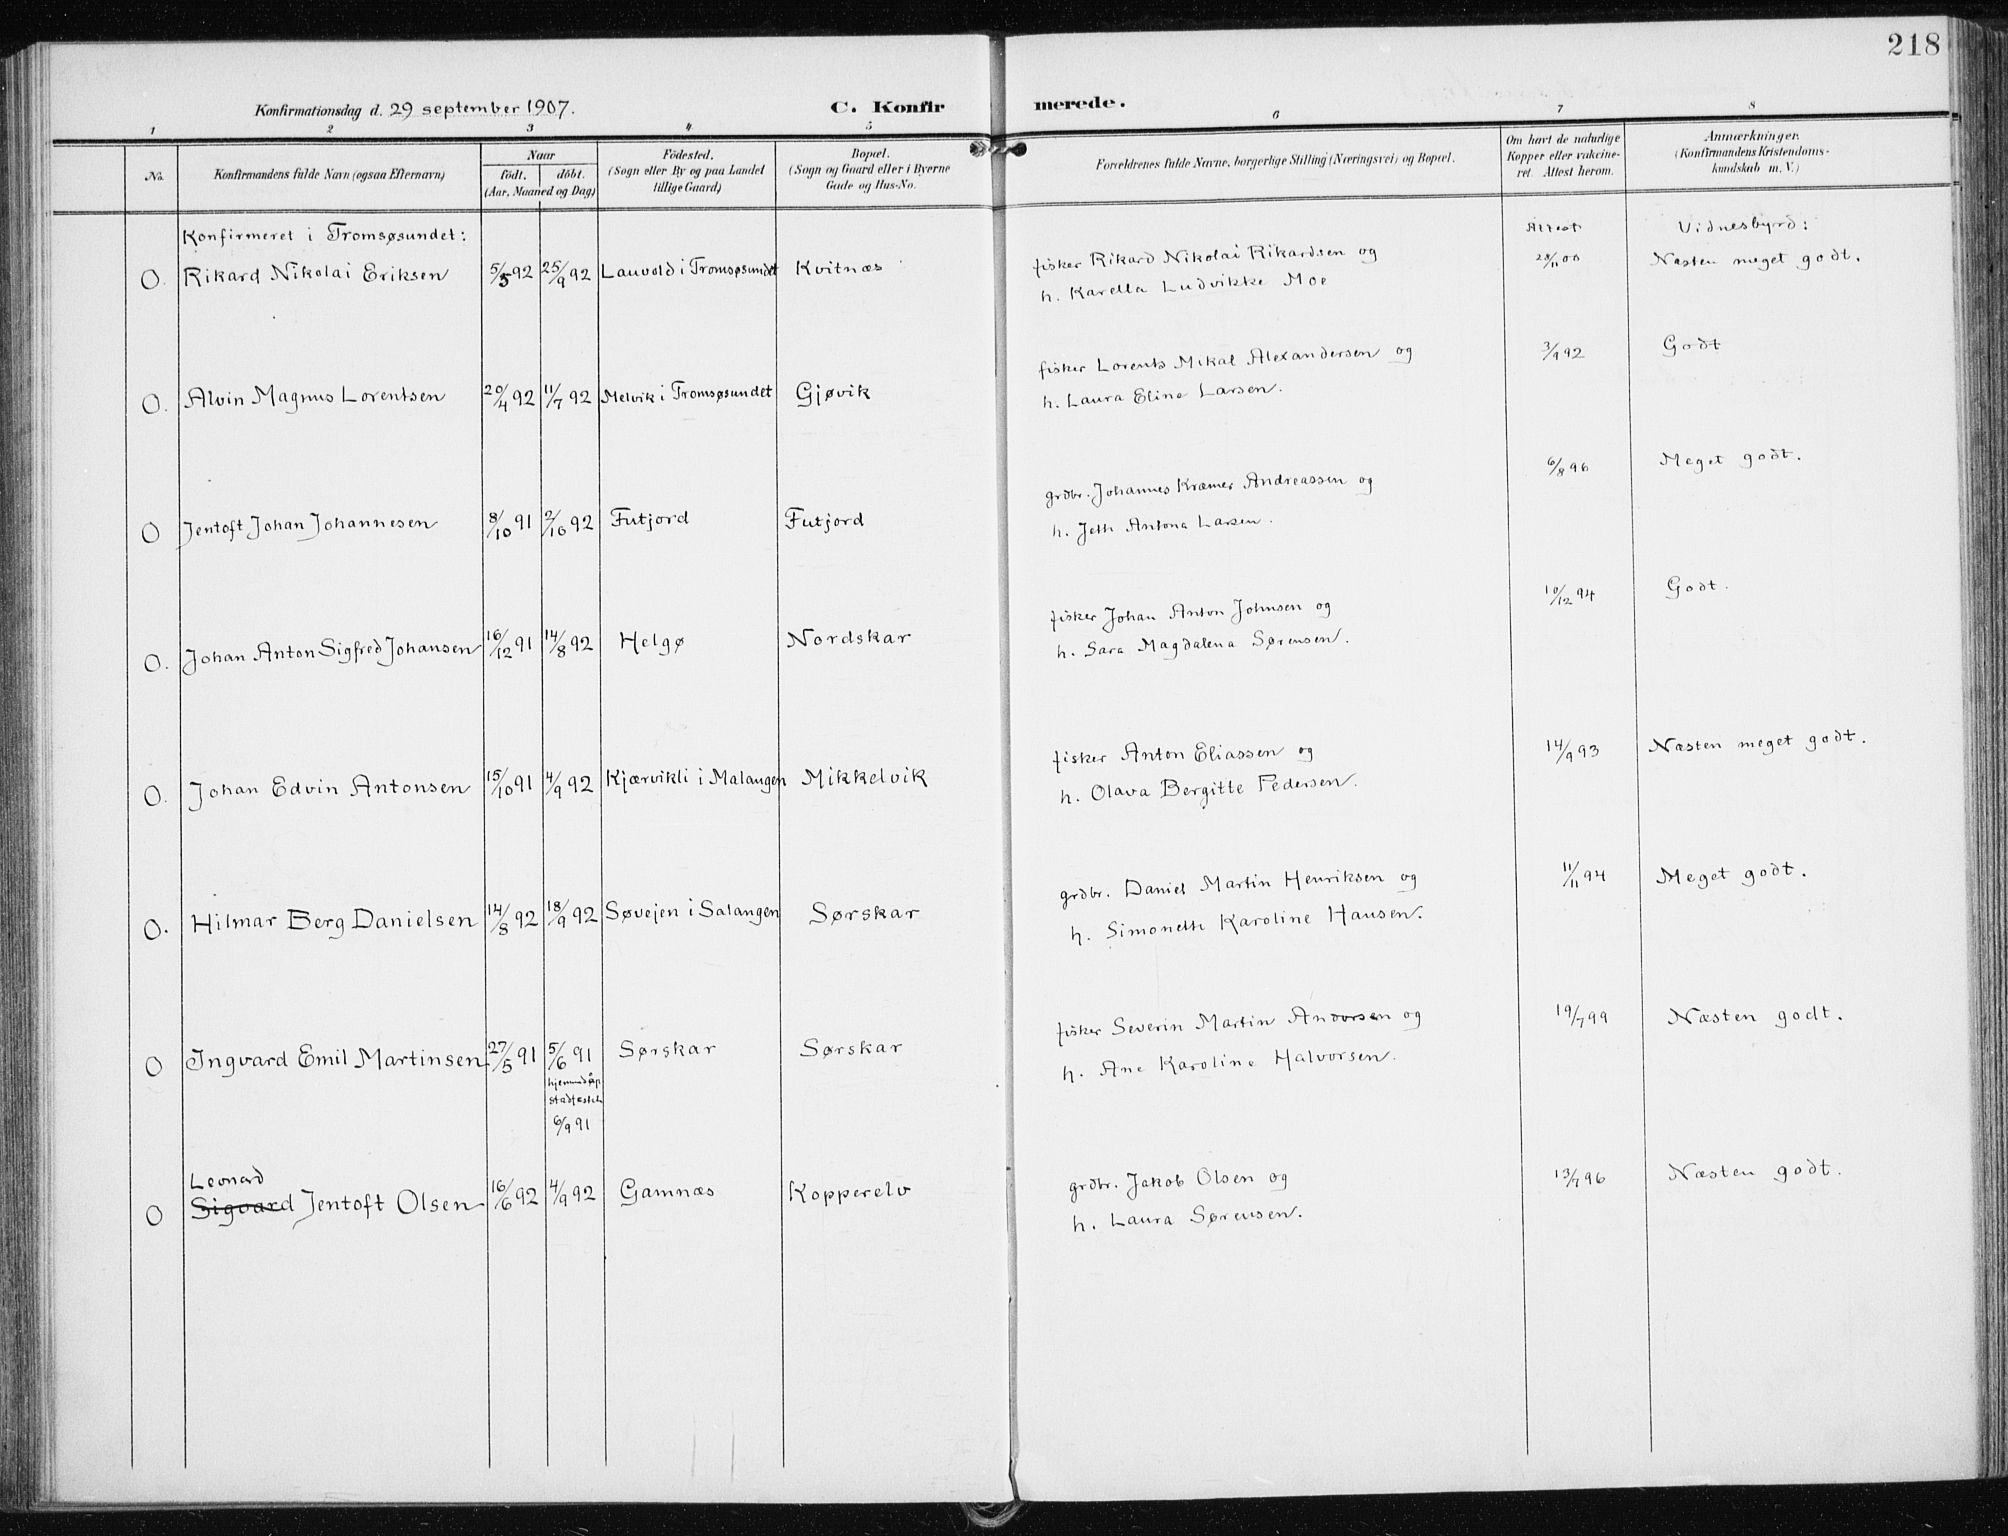 218
Konfirmationsdag d. 29 september 1907. C. Konfirmerede.
1 2 3 4 5 6 7 8
No. Konfirmandens fulde Navn (ogsaa Efternavn) Naar født. døbt. (Aar, Maaned og Dag) Födested. (Sogn eller By og paa Landet tillige Gaard) Bopæl. (Sogn og Gaard eller i Byerne Gade og Hus-No. Forældrenes fulde Navne, borgerlige Stilling (Næringsvei) og Bopæl. Om havt de naturlige Kopper eller vakcineret. Attest herom. Anmærkninger. (Konfirmandens Kristendomskundskab m. V.)
Konfirmeret i Tromsøsundet: Attest Vidnesbyrd:
O. Rikard Nikolai Eriksen 5/5 92 25/9 92 Lauvold i Tromsøsundet Kvitnæs fisker Rikard Nikolai Rikardsen og 28/11 00 Næsten meget godt.
h. Karella Ludvikke Moe
O. Alvin Magnus Lorentsen 20/4 92 11/7 92 Melvik i Tromsøsundet Gjøvik fisker Lorents Mikal Alexandersen og 3/9 92 Godt
h. Laura Eline Larsen.
O Jentoft Johan Johannesen 8/10 91 2/10 92 Futjord Futjord grdbr. Johannes Kræmer Andreassen og 6/8 96 Meget godt.
h. Jeth Antona Larsen.
O. Johan Anton Sigfred Johansen 16/12 91 14/8 92 Helgø Nordskar fisker Johan Anton Johnsen og 10/12 94 Godt.
h. Sara Magdalena Sørensen.
O. Johan Edvin Antonsen 15/10 91 4/9 92 Kjærvikli i Malangen Mikkelvik fisker Anton Eliassen og 14/9 93 Næsten meget godt.
h. Olava Bergitte Pedersen.
O. Hilmar Berg Danielsen 14/8 92 18/9 92 Søvejen i Salangen Sørskar grdbr. Daniel Martin Henriksen og 11/11 94 Meget godt.
h. Simonette Karoline Hansen.
O Ingvard Emil Martinsen 27/5 91 5/6 91 Sørskar Sørskar fisker Severin Martin Andorsen og 19/7 99 Næsten godt.
h. Ane Karoline Halvorsen.
6/9 91
Leonard
O Sigvard Jentoft Olsen 16/6 92 4/9 92 Gamnæs Kopperelv grdbr. Jakob Olsen og 13/7 96 Næsten godt.
h. Laura Sørensen.